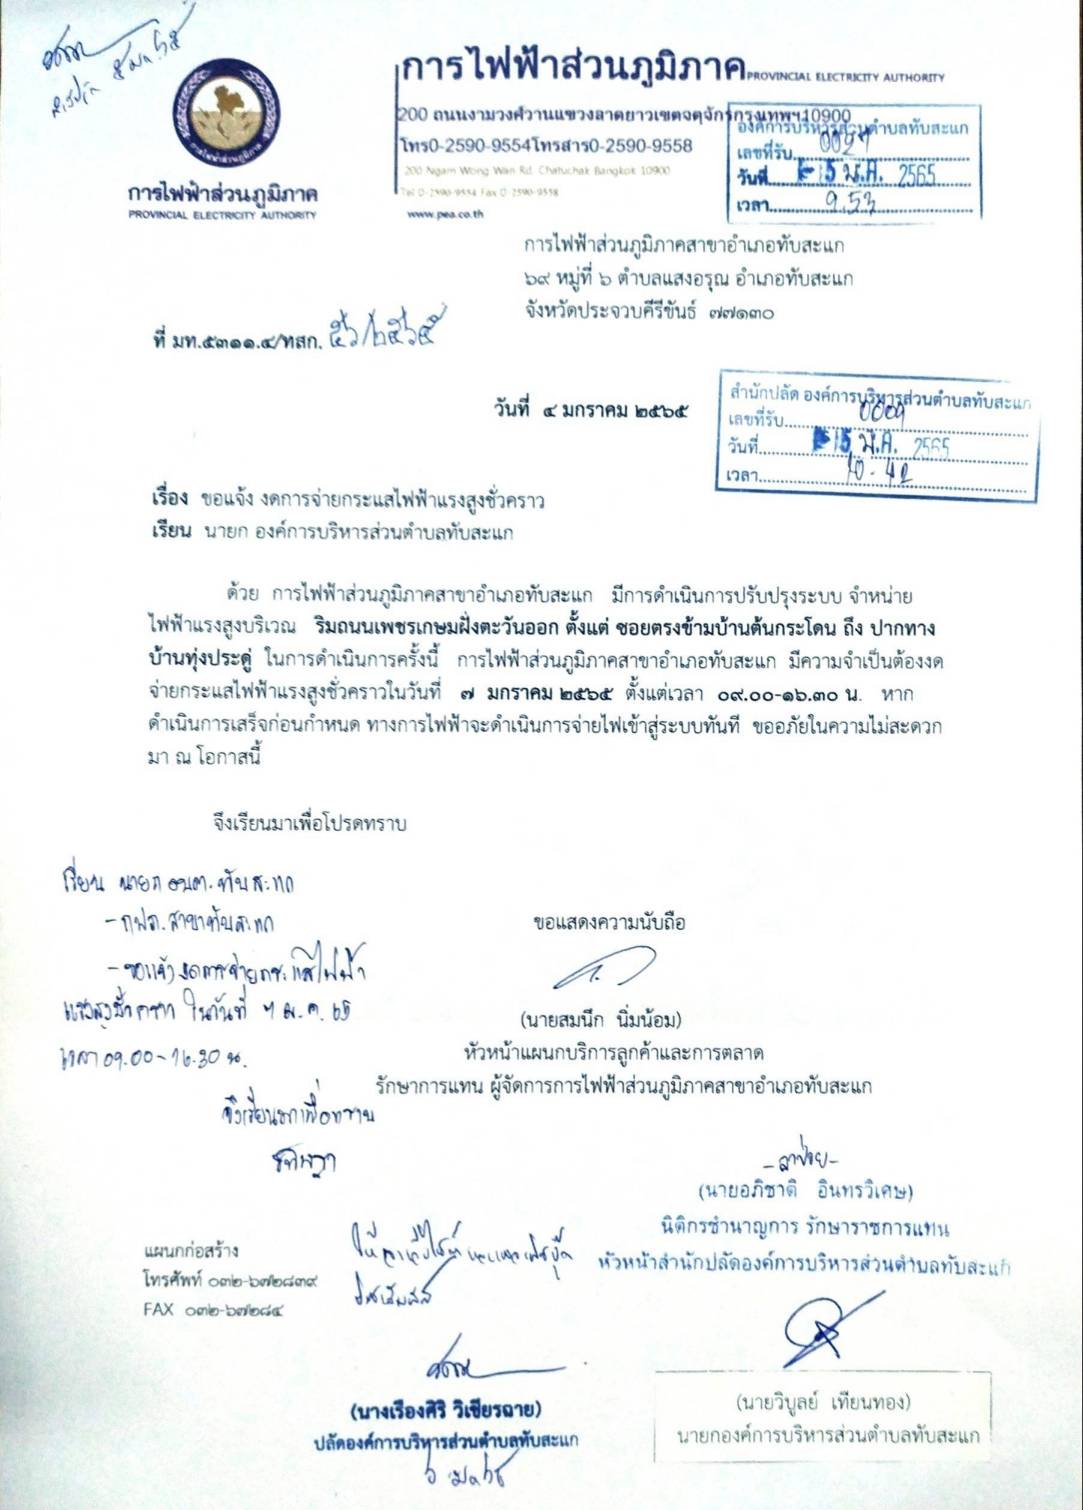 การไฟฟ้าส่วนภูมิภาค
PROVINCIAL ELECTRICITY AUTHORITY
การไฟฟ้าส่วนภูมิภาค PROVINCIAL ELECTRICITY AUTHORITY
200 ถนนงามวงศ์วานแขวงลาดยาวเขตจตุจักรกรุงเทพฯ10900
โทร0-2590-9554โทรสาร0-2590-9558
200 Ngam Wong Wan Rd. Chatuchak Bangkok 10900
Tel 0-2590-9554 Fax 0-2590-9558
www.pea.co.th
องค์การบริหารส่วนตำบลทับสะแก
เลขที่รับ
วันที่ 5 ม.ค. 2565
เวลา 9.53
การไฟฟ้าส่วนภูมิภาคสาขาอำเภอทับสะแก
๖๙ หมู่ที่ ๖ ตำบลแสงอรุณ อำเภอทับสะแก
จังหวัดประจวบคีรีขันธ์ ๗๗๑๓๐
ที่ มท.๕๓๑๑.๔/ทสก. ๕๖/๒๕๖๕
วันที่ ๔ มกราคม ๒๕๖๕
สำนักปลัด องค์การบริหารส่วนตำบลทับสะแก
เลขที่รับ
วันที่ 5 ม.ค. 2565
เวลา 10-42
เรื่อง ขอแจ้ง งดการจ่ายกระแสไฟฟ้าแรงสูงชั่วคราว
เรียน นายก องค์การบริหารส่วนตำบลทับสะแก
ด้วย การไฟฟ้าส่วนภูมิภาคสาขาอำเภอทับสะแก มีการดำเนินการปรับปรุงระบบ จำหน่าย
ไฟฟ้าแรงสูงบริเวณ ริมถนนเพชรเกษมฝั่งตะวันออก ตั้งแต่ ซอยตรงข้ามบ้านต้นกระโดน ถึง ปากทาง
บ้านทุ่งประดู่ ในการดำเนินการครั้งนี้ การไฟฟ้าส่วนภูมิภาคสาขาอำเภอทับสะแก มีความจำเป็นต้องงด
จ่ายกระแสไฟฟ้าแรงสูงชั่วคราวในวันที่ ๗ มกราคม ๒๕๖๕ ตั้งแต่เวลา ๐๙.๐๐-๑๖.๓๐ น. หาก
ดำเนินการเสร็จก่อนกำหนด ทางการไฟฟ้าจะดำเนินการจ่ายไฟเข้าสู่ระบบทันที ขออภัยในความไม่สะดวก
มา ณ โอกาสนี้
จึงเรียนมาเพื่อโปรดทราบ
เรียน นายก อบต.ทับสะแก
- กฟภ.สาขาทับสะแก
- ขอแจ้งงดการจ่ายกระแสไฟฟ้า
แรงสูงชั่วคราว ในวันที่ 7 ม.ค. 65
เวลา 09.00-16.30 น.
จึงเรียนมาเพื่อทราบ
ขอแสดงความนับถือ
(นายสมนึก นิ่มน้อม)
หัวหน้าแผนกบริการลูกค้าและการตลาด
รักษาการแทน ผู้จัดการการไฟฟ้าส่วนภูมิภาคสาขาอำเภอทับสะแก
-ลาป่วย-
(นายอภิชาติ อินทรวิเศษ)
นิติกรชำนาญการ รักษาราชการแทน
หัวหน้าสำนักปลัดองค์การบริหารส่วนตำบลทับสะแก
แผนกก่อสร้าง
โทรศัพท์ ๐๓๒-๖๗๒๘๓๙
FAX ๐๓๒-๖๗๒๘๔
(นางเรืองศิริ วิเชียรฉาย)
ปลัดองค์การบริหารส่วนตำบลทับสะแก
๖ ม.ค. ๖๕
(นายวิบูลย์ เทียนทอง)
นายกองค์การบริหารส่วนตำบลทับสะแก